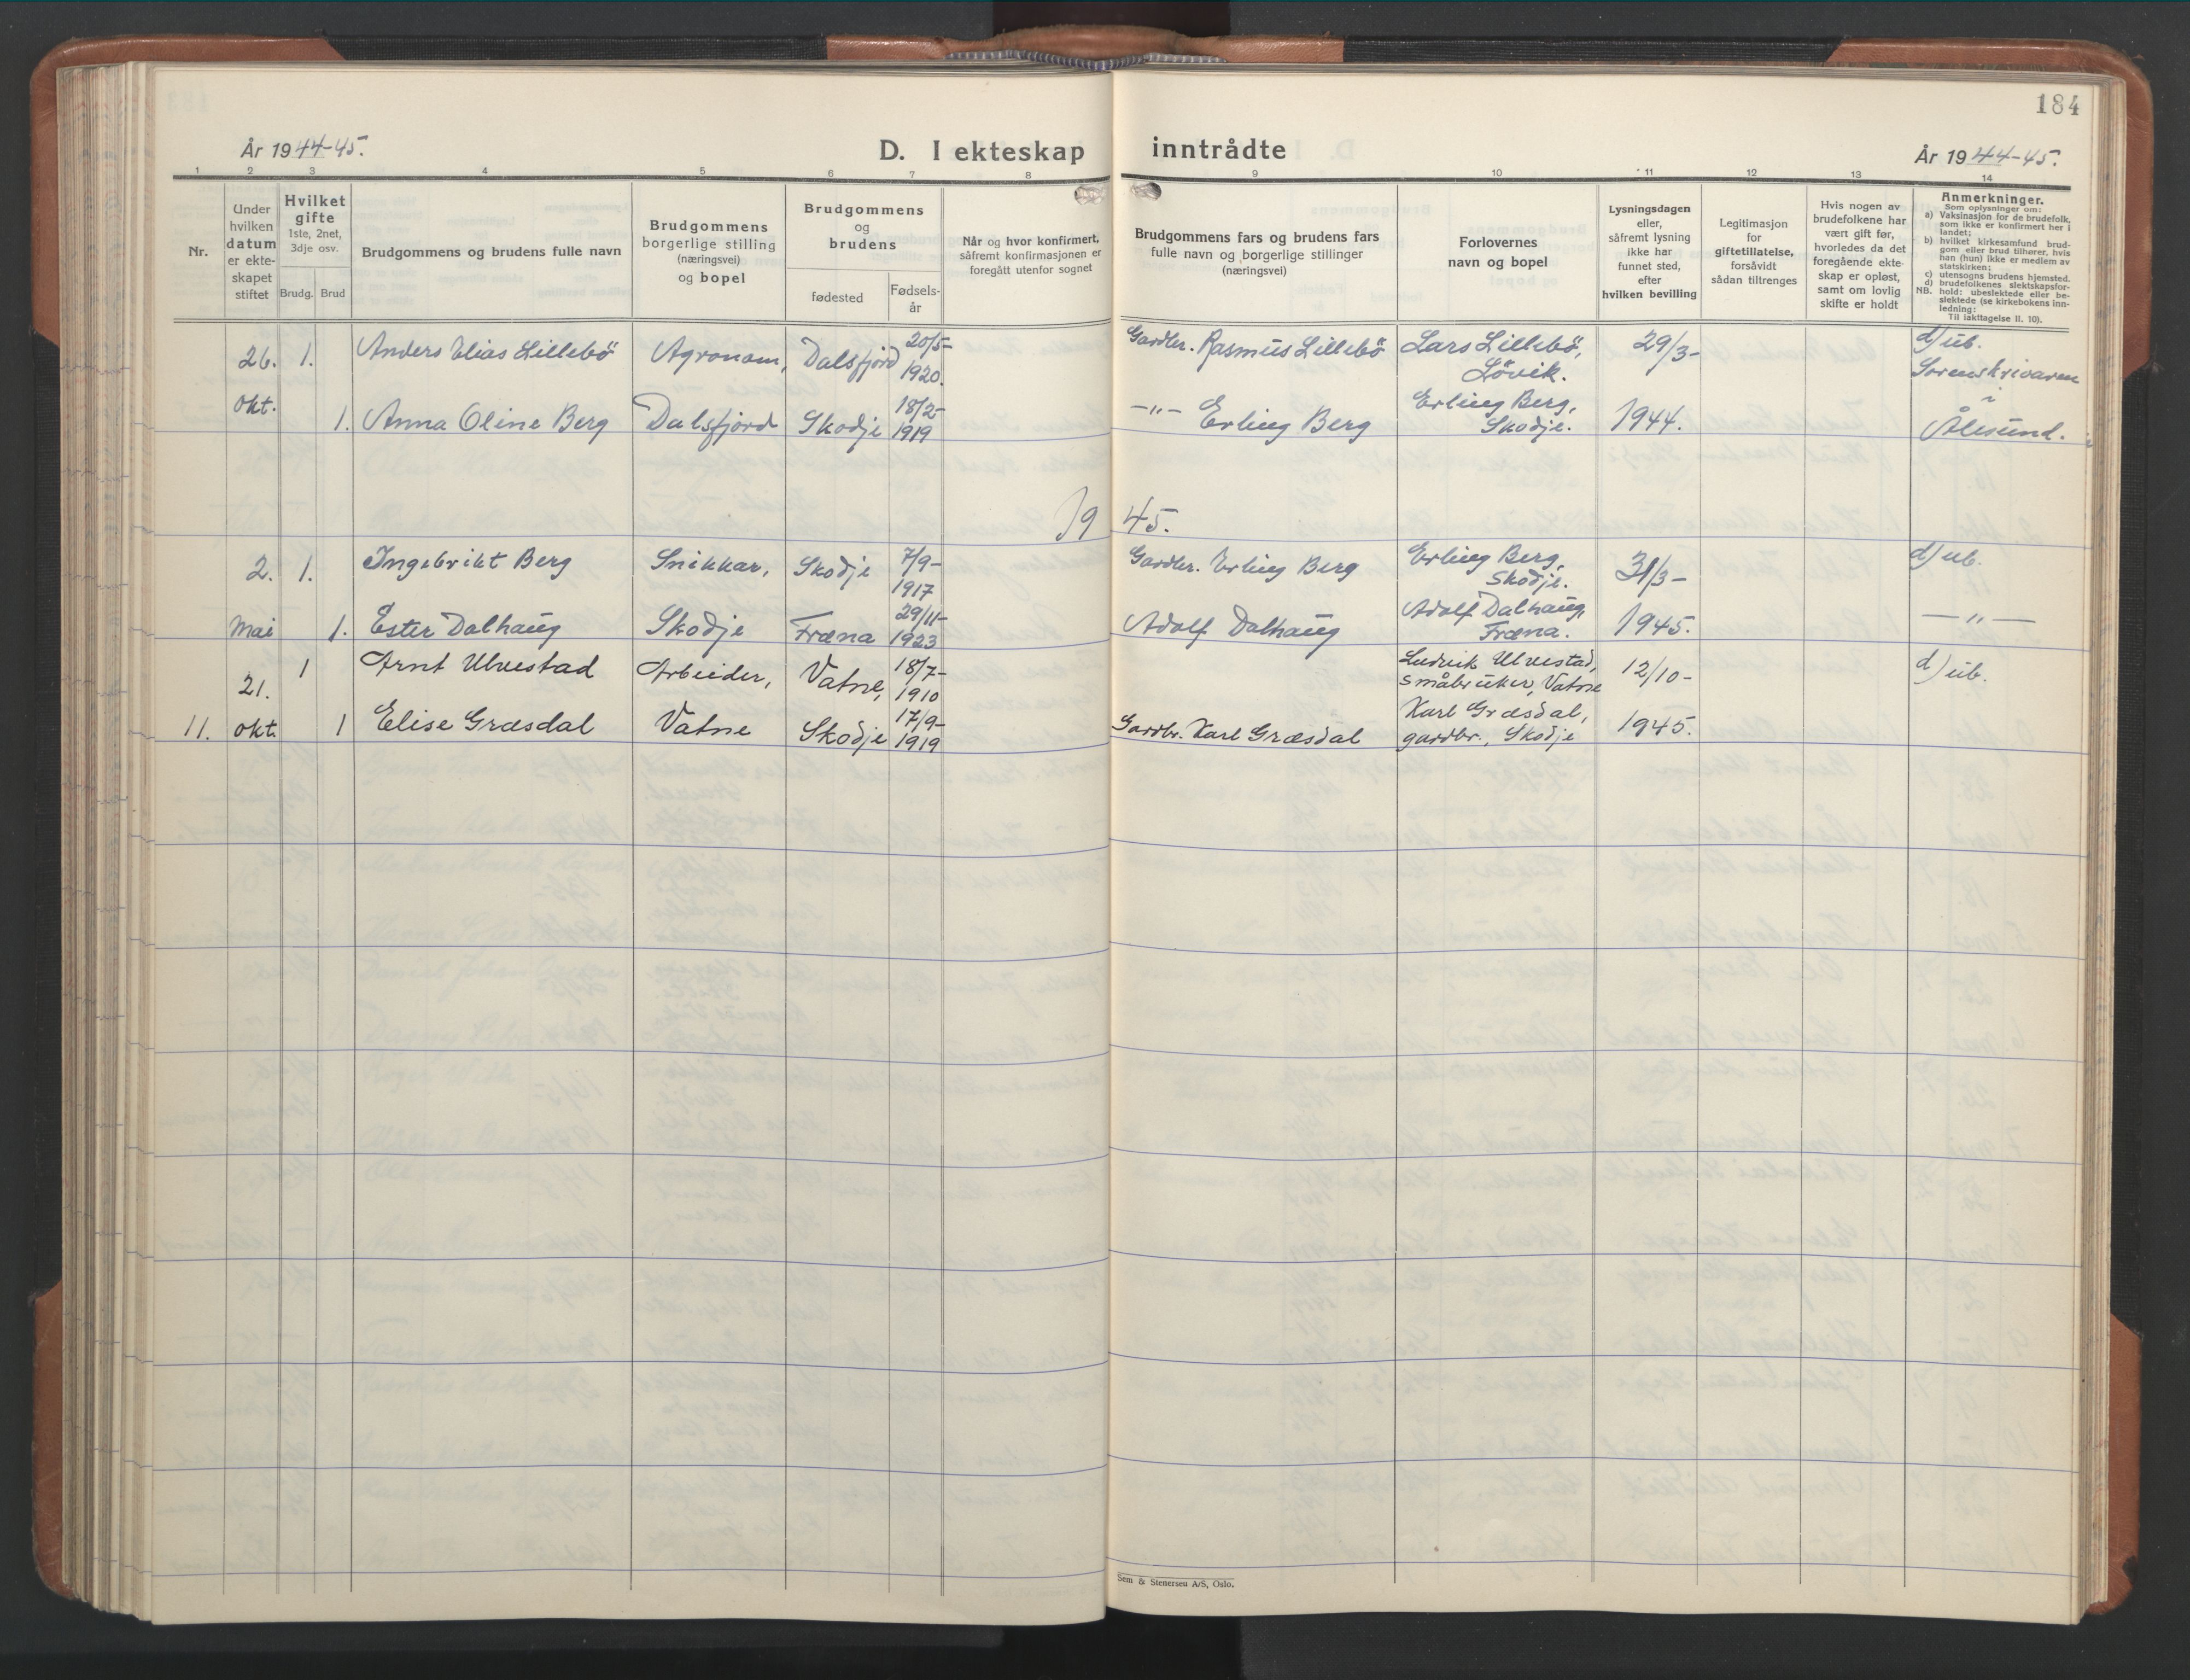 184
År 1944-45.
D. I ekteskap inntrådte
År 1944-45.
1 2 3 4 5 6 7 8 9 10 11 12 13 14
Nr.
Under
hvilken
datum
er ekte-
skapet
stiftet
Hvilket
gifte
1ste, 2net,
3dje osv.
Brudg. Brud
Brudgommens og brudens fulle navn
Brudgommens
borgerlige stilling
(næringsvei)
og bopel
Brudgommens
og
brudens
fødested
Fødsels-
år
Når og hvor konfirmert,
såfremt konfirmasjonen er
foregått utenfor sognet
Brudgommens fars og brudens fars
fulle navn og borgerlige stillinger
(næringsvei)
Forlovernes
navn og bopel
Lysningsdagen
eller,
såfremt lysning
ikke har
funnet sted,
efter
hvilken bevilling
Legitimasjon
for
giftetillatelse,
forsåvidt
sådan tiltrenges
Hvis nogen av
brudefolkene har
vært gift før,
hvorledes da det
foregående ekte-
skap er opløst,
samt om lovlig
skifte er holdt
Anmerkninger.
Som oplysninger om:
a) Vaksinasjon for de brudefolk,
som ikke er konfirmert her i
landet;
b) hvilket kirkesamfund brud-
gom eller brud tilhører, hvis
han (hun) ikke er medlem av
statskirken;
c) utensogns brudens hjemsted.
d) brudefolkenes slektskapsfor-
NB. hold: ubeslektede eller be-
slektede (se kirkebokens inn-
ledning:
Til iakttagelse II. 10).
26. 1. Anders Elias Lillebö Agronom, Dalsfjord 20/5- 1920. Gardbr. Rasmus Lillebö Lars Lillebö, Lövik. 29/3- d) ub.
Sorenskrivaren
i
okt. 1. Anna Oline Berg Dalsfjord Skodje 18/2- 1919 -"- Erling Berg Erling Berg, Skodje. 1944. Ålesund.
1945.
2. 1. Ingebrikt Berg Snikkar, Skodje 7/9- 1917 Gardbr. Erling Berg Erling Berg, Skodje. 31/3- d) ub.
mai 1. Ester Dalhaug Skodje Fræna 29/11- 1923 Adolf Dalhaug Adolf Dalhaug, Fræna. 1945. -"-
21. 1 Arnt Ulvestad Arbeider, Vatne, 18/7- 1910 Ludvik Ulvestad, småbruker, Vatne 12/10- d) ub.
11. okt. 1 Elise Græsdal Vatne Skodje 17/9- 1919 Gardbr. Karl Græsdal Karl Græsdal, gardbr., Skodje 1945.
Sem & Stenersen A/S, Oslo.